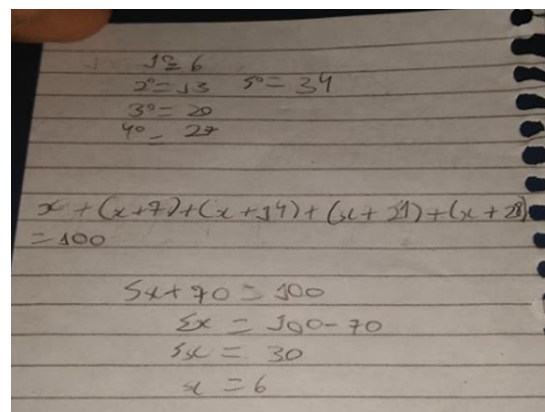 1º = 6
2º = 13 5º = 34
3º = 20
4º = 27
x + (x+7) + (x+14) + (x+21) + (x+28)
= 100
5x + 70 = 100
5x = 100 - 70
5x = 30
x = 6